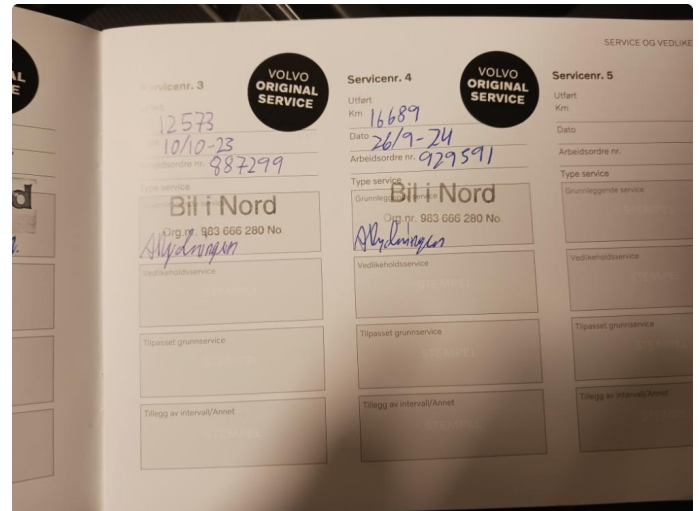 SERVICE OG VEDLIKE
Servicenr. 3
VOLVO
ORIGINAL
SERVICE
12573
10/10-23
Arbeidsordre nr. 887299
Bil i Nord
Org.nr. 983 666 280 No
Vedlikeholdsservice
STEMPEL
Tilpasset grunnservice
STEMPEL
Tillegg av intervall/Annet
STEMPEL
Servicenr. 4
VOLVO
ORIGINAL
SERVICE
Utført
Km 16689
Dato 26/9-24
Arbeidsordre nr. 929591
Type service
Grunnleggende service
Bil i Nord
Org.nr. 983 666 280 No
Vedlikeholdsservice
STEMPEL
Tilpasset grunnservice
STEMPEL
Tillegg av intervall/Annet
STEMPEL
Servicenr. 5
Utført
Km
Dato
Arbeidsordre nr.
Type service
Grunnleggende service
STEMPEL
Vedlikeholdsservice
STEMPEL
Tilpasset grunnservice
STEMPEL
Tillegg av intervall/Annet
STEMPEL